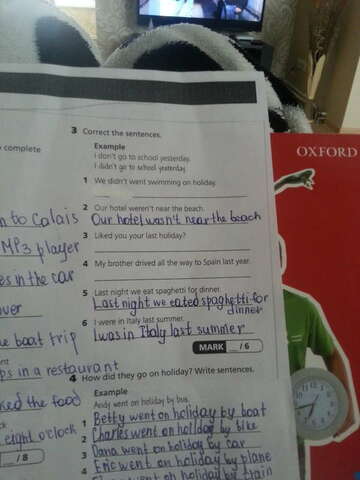 complete
to Calais
MP3 player
in the car
boat trip
in a restaurant
the food
eight o'clock
/ 8
3 Correct the sentences.
Example
I don't go to school yesterday.
I didn't go to school yesterday.
1 We didn't went swimming on holiday.
2 Our hotel weren't near the beach.
Our hotel wasn't near the beach
3 Liked you your last holiday?
4 My brother drived all the way to Spain last year.
5 Last night we eat spaghetti for dinner.
Last night we eated spaghetti for
dinner
6 I were in Italy last summer.
I was in Italy last summer
MARK / 6
4 How did they go on holiday? Write sentences.
Example
Andy went on holiday by bus.
1 Betty went on holiday by boat
2 Charles went on holiday by bike
3 Dana went on holiday by car
4 Eric went on holiday by plane
went on holiday by train
OXFORD